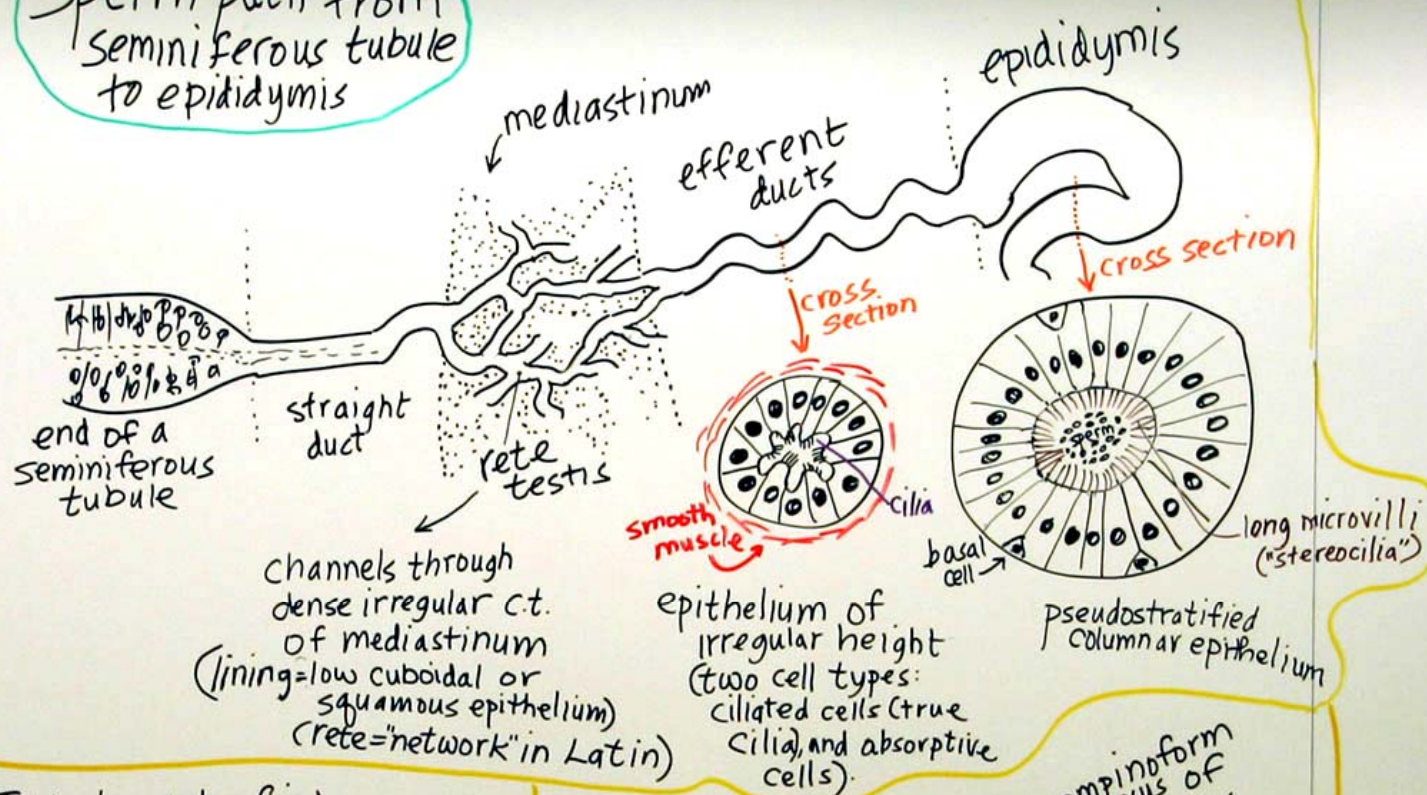 Sperm path from
seminiferous tubule
to epididymis
mediastinum
efferent
ducts
epididymis
cross section
cross
section
end of a
seminiferous
tubule
straight
duct
rete
testis
cilia
smooth
muscle
sperm
basal
cell
long microvilli
("stereocilia")
channels through
dense irregular c.t.
of mediastinum
(lining=low cuboidal or
squamous epithelium)
(rete="network" in Latin)
epithelium of
irregular height
(two cell types:
ciliated cells (true
cilia), and absorptive
cells).
pseudostratified
columnar epithelium
of